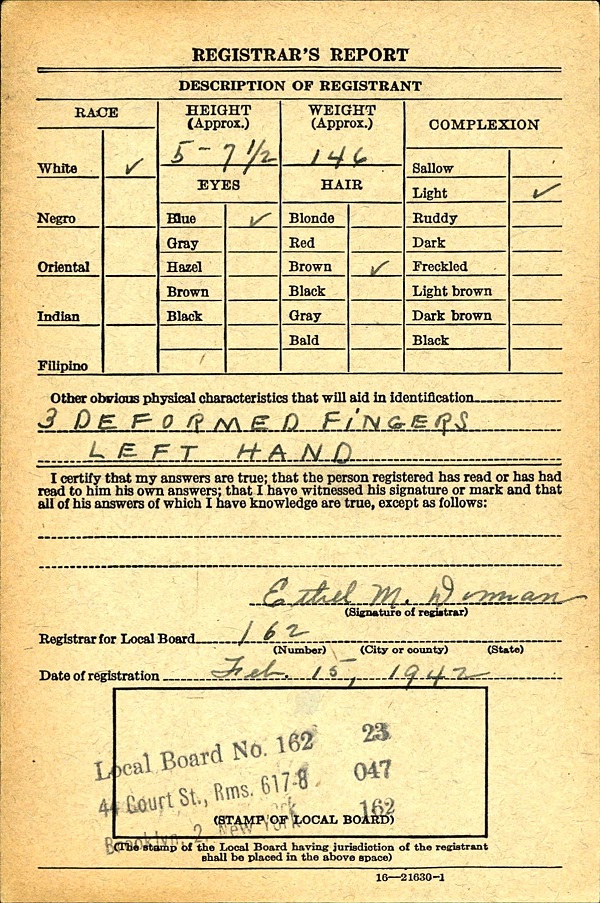 REGISTRAR'S REPORT
DESCRIPTION OF REGISTRANT
RACE
HEIGHT
(Approx.)
WEIGHT
(Approx.)
COMPLEXION
5-7 1/2
146
White ✓
EYES
HAIR
Sallow
Light ✓
Negro
Blue ✓
Blonde
Ruddy
Gray
Red
Dark
Oriental
Hazel
Brown ✓
Freckled
Brown
Black
Light brown
Indian
Black
Gray
Dark brown
Bald
Black
Filipino
Other obvious physical characteristics that will aid in identification
3 DEFORMED FINGERS
LEFT HAND
I certify that my answers are true; that the person registered has read or has had
read to him his own answers; that I have witnessed his signature or mark and that
all of his answers of which I have knowledge are true, except as follows:
Ethel M.
(Signature of registrar)
Registrar for Local Board 162
(Number) (City or county) (State)
Date of registration Feb. 15, 1942
Local Board No. 162 23
44 Court St., Rms. 617-8 047
Brooklyn, 2, New York 162
(STAMP OF LOCAL BOARD)
(The stamp of the Local Board having jurisdiction of the registrant
shall be placed in the above space)
16—21630-1